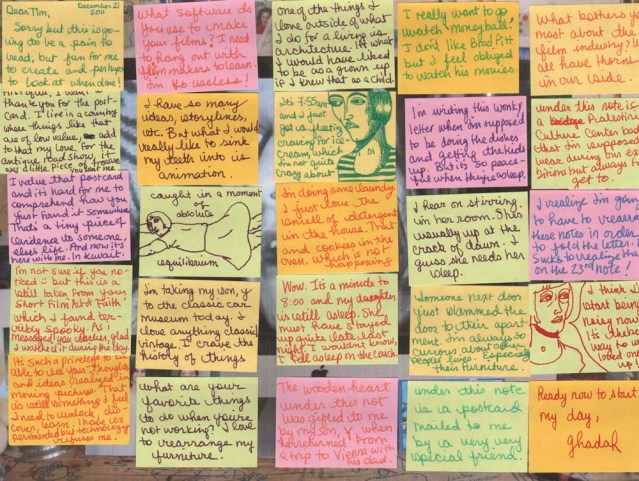 Dear Tim, December 21 2011
Sorry but this is go-
ing to be a pain to
read, but fun for me
to create and perhaps
to look at when done!
thank you for the post-
card. I live in a country
where things like that
are of low value, add
to that my love for the
antique road show, it's
my little piece of treasure
you sent me
I value that postcard
and it's hard for me to
comprehend how you
just found it somewhere
That's a tiny piece of
evidence to someone
else's life. And now it's
here with me. In Kuwait.
I'm not sure if you no-
ticed - but this is a
still taken from your
Short Film Art & Faith
which I found ter-
ribly spooky. As I
messaged you earlier, glad
I watched it during the day.
It's such a privilege to be
able to see your thoughts
and ideas realized in
moving pictures. That
is still something I feel
I need to unlock, dis-
cover, learn. I have ex-
perimented but technology
refuses me.
What software do
you use to make
your films? I need
to hang out with
film makers to learn.
I'm so useless!
I have so many
ideas, storylines,
etc. But what I would
really like to sink
my teeth into is
animation.
caught in a moment
of
absolute
equilibrium
I'm taking my son, y
to the classic car
museum today. I
love anything classic/
vintage. I crave the
history of things
what are your
favorite things
to do when you're
not working? I love
to rearrange my
furniture.
one of the things I
love outside of what
I do for a living is
architecture. It's what
I would have liked
to be as a grown up
if I knew that as a child.
It's 7:55am
and I
just got
a fleeting
craving
for ice-
cream, which
I'm not quite
crazy about
I'm doing some laundry
I just love the
smell of detergent
in the house. That
and cookies in the
oven. Which is not
happening.
Wow. It's a minute to
8:00 and my daughter
is still asleep. She
must have stayed
up quite late last
night. I wouldn't know,
I fell asleep on the couch
The wooden heart
under this note
was gifted to me
by my son, Y when
he returned from
a trip to Vienna with
his dad.
I really want to go
watch 'moneyball'
I don't like Brad Pitt
but I feel obliged
to watch his movies.
I'm writing this wonky
letter when I'm supposed
to be doing the dishes
and getting the kids
up. But it is so peace-
ful when they're asleep.
I hear on stirring
in her room. She's
usually up at the
crack of dawn. I
guess she needs her
sleep.
Someone next door
just slammed the
door to their apart
ment. I'm always so
curious about other
people's lives. Especially
their furniture.
under this note
is a postcard
mailed to me
by a very very
special friend.
What bothers you
most about the
film industry? We
all have thorns
in our side.
under this note is
a Palestinian
Culture Center bag
that I'm supposed
wear during our ex
ibitions but always for
get to.
I realize I'm going
to have to rearrange
these notes in order
to fold the letter.
Sucks to realize that
on the 23rd note!
I
start being
noisy now
It's
way to w
loved one
up!
Ready now to start
my day,
Ghadah